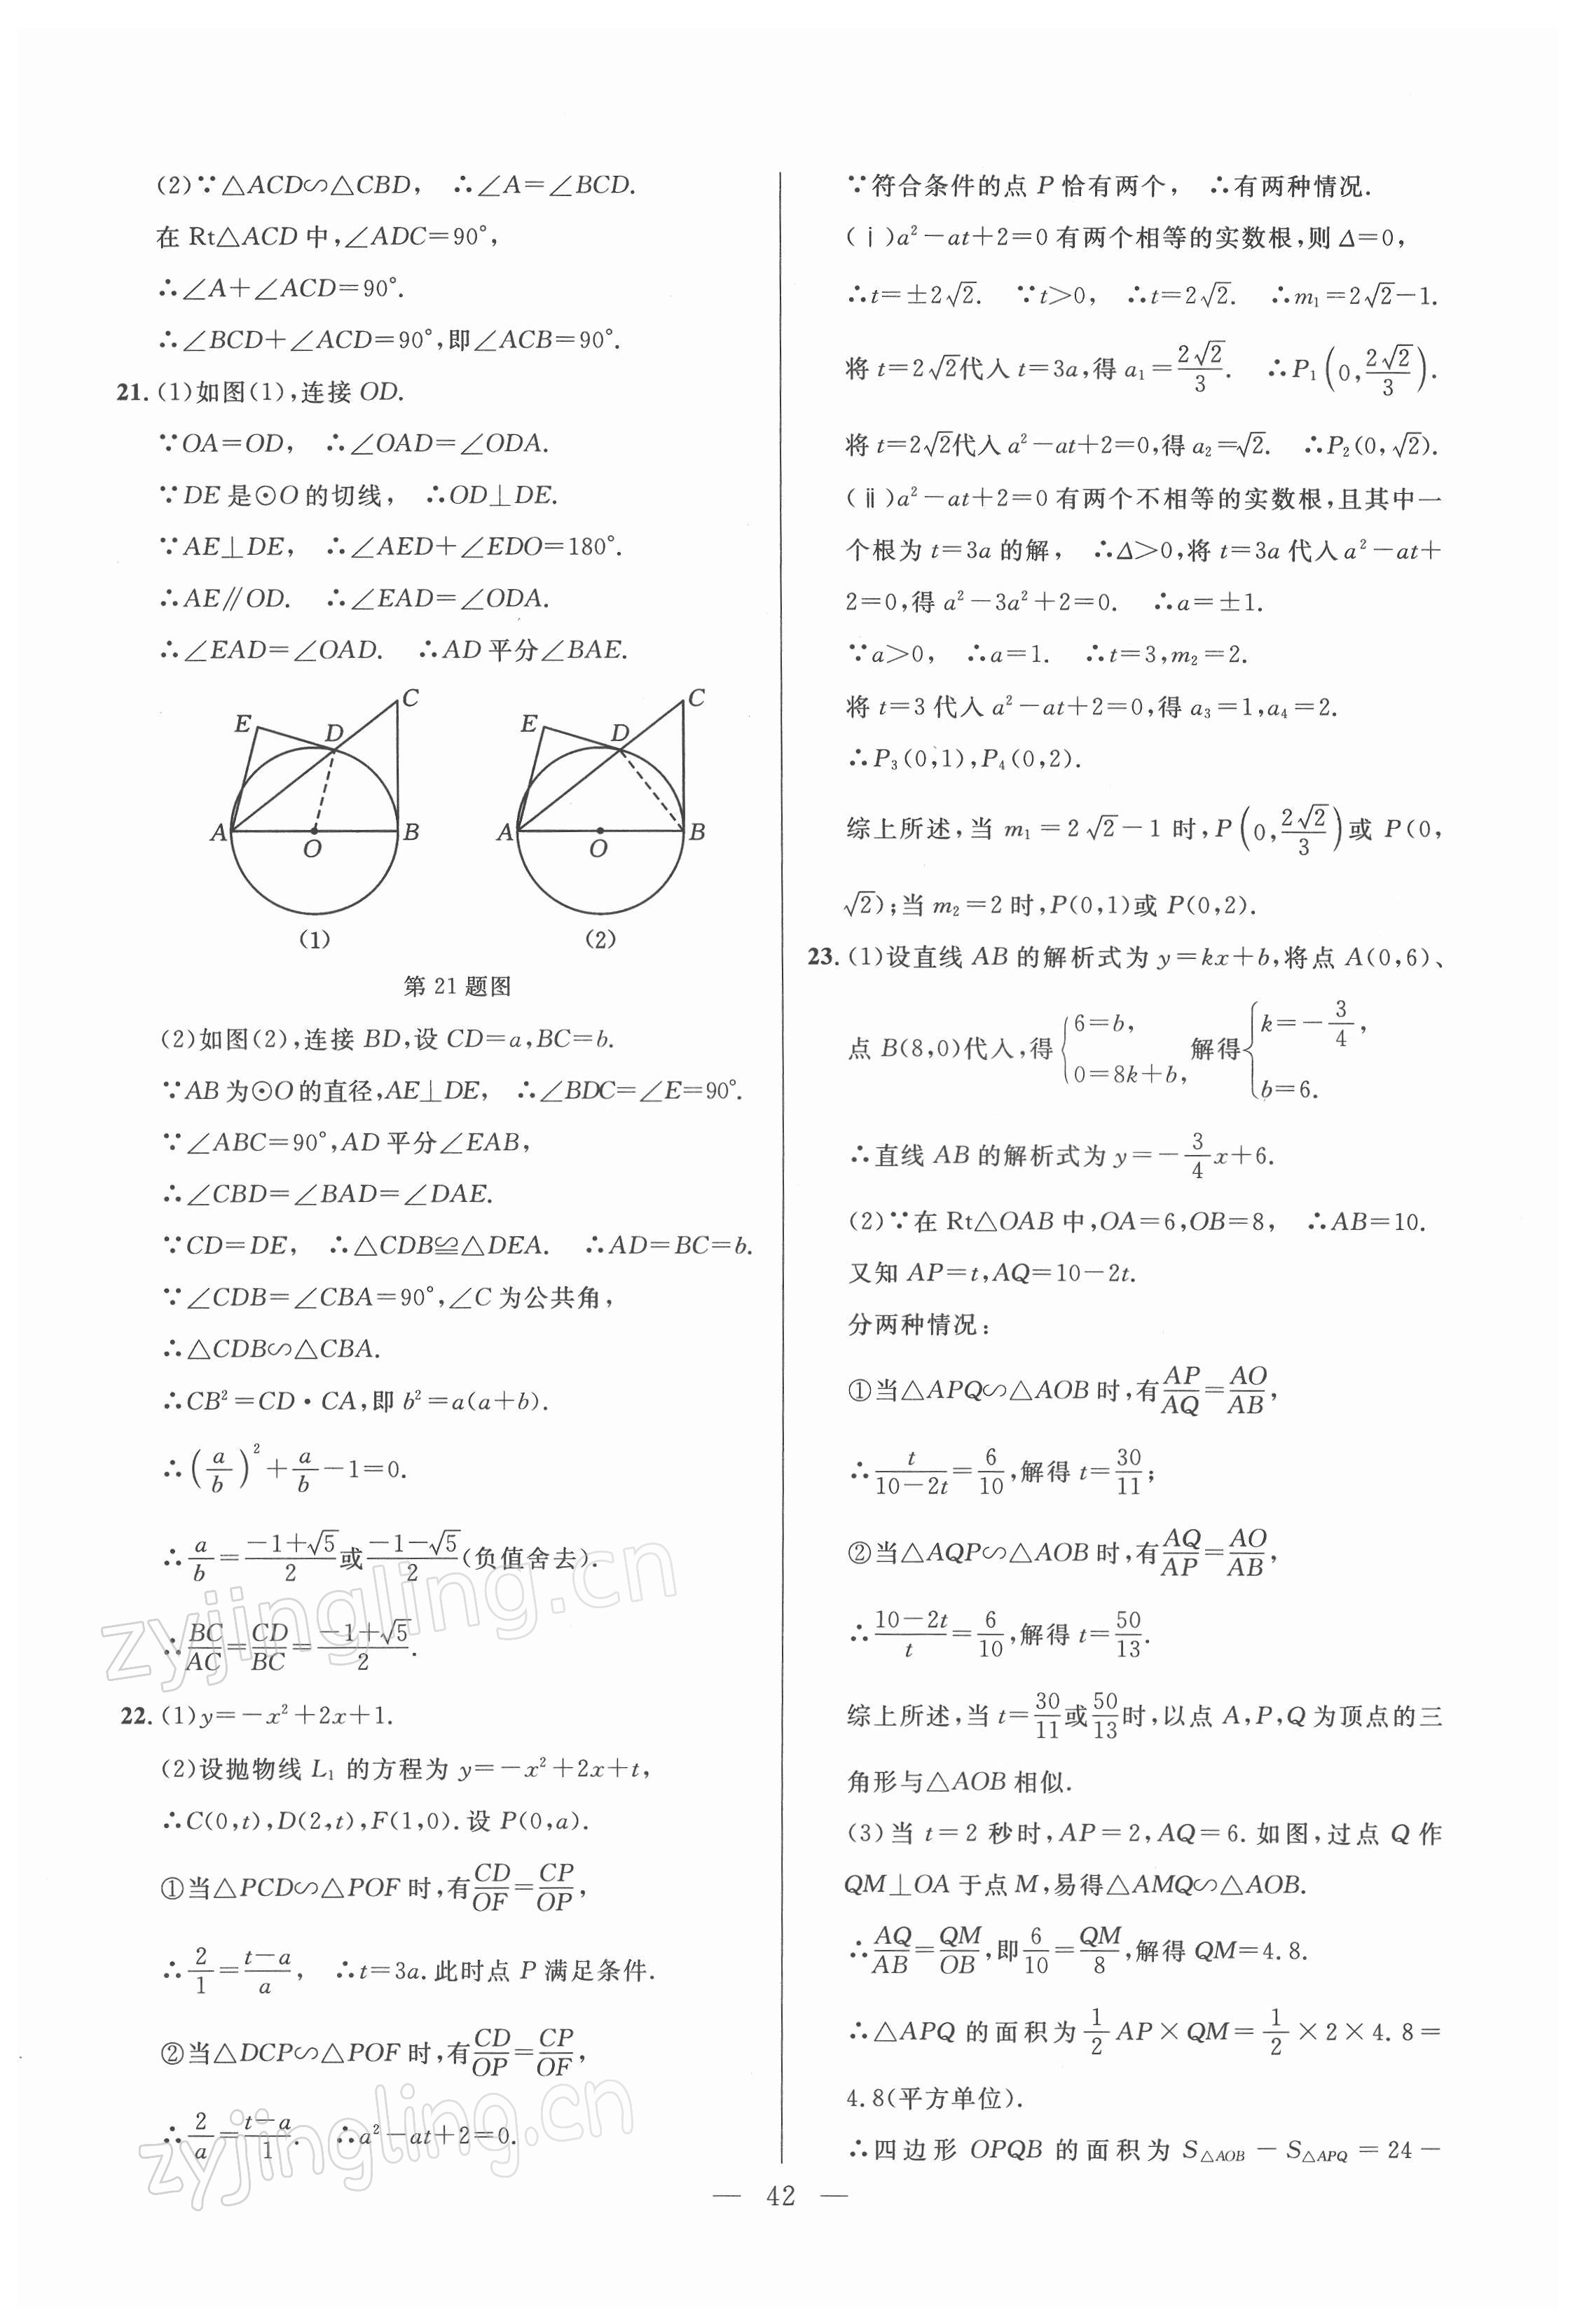 (2)∵△ACD∽△CBD, ∴∠A=∠BCD.
在 Rt△ACD 中,∠ADC=90°,
∴∠A+∠ACD=90°.
∴∠BCD+∠ACD=90°,即∠ACB=90°.
21. (1)如图(1),连接 OD.
∵OA=OD, ∴∠OAD=∠ODA.
∵DE 是⊙O 的切线, ∴OD⊥DE.
∵AE⊥DE, ∴∠AED+∠EDO=180°.
∴AE∥OD. ∴∠EAD=∠ODA.
∴∠EAD=∠OAD. ∴AD 平分∠BAE.
E D C A O B
(1)
E D C A O B
(2)
第 21 题图
(2)如图(2),连接 BD,设 CD=a,BC=b.
∵AB 为⊙O 的直径,AE⊥DE, ∴∠BDC=∠E=90°.
∵∠ABC=90°,AD 平分∠EAB,
∴∠CBD=∠BAD=∠DAE.
∵CD=DE, ∴△CDB≌△DEA. ∴AD=BC=b.
∵∠CDB=∠CBA=90°,∠C 为公共角,
∴△CDB∽△CBA.
∴CB²=CD·CA,即 b²=a(a+b).
∴(a/b)²+a/b-1=0.
∴a/b=(-1+√5)/2或(-1-√5)/2(负值舍去).
∴BC/AC=CD/BC=(-1+√5)/2.
22. (1)y=-x²+2x+1.
(2)设抛物线 L₁ 的方程为 y=-x²+2x+t,
∴C(0,t),D(2,t),F(1,0).设 P(0,a).
①当△PCD∽△POF 时,有CD/OF=CP/OP,
∴2/1=(t-a)/a, ∴t=3a.此时点 P 满足条件.
②当△DCP∽△POF 时,有CD/OP=CP/OF,
∴2/a=(t-a)/1. ∴a²-at+2=0.
∵符合条件的点 P 恰有两个, ∴有两种情况.
(ⅰ)a²-at+2=0 有两个相等的实数根,则 Δ=0,
∴t=±2√2. ∵t>0, ∴t=2√2. ∴m₁=2√2-1.
将 t=2√2代入 t=3a,得 a₁=2√2/3. ∴P₁(0,2√2/3).
将 t=2√2代入 a²-at+2=0,得 a₂=√2. ∴P₂(0,√2).
(ⅱ)a²-at+2=0 有两个不相等的实数根,且其中一
个根为 t=3a 的解, ∴Δ>0,将 t=3a 代入 a²-at+
2=0,得 a²-3a²+2=0. ∴a=±1.
∵a>0, ∴a=1. ∴t=3,m₂=2.
将 t=3 代入 a²-at+2=0,得 a₃=1,a₄=2.
∴P₃(0,1),P₄(0,2).
综上所述,当 m₁=2√2-1 时,P(0,2√2/3)或 P(0,
√2);当 m₂=2 时,P(0,1)或 P(0,2).
23. (1)设直线 AB 的解析式为 y=kx+b,将点 A(0,6)、
点 B(8,0)代入,得{6=b, 0=8k+b, 解得{k=-3/4, b=6.
∴直线 AB 的解析式为 y=-3/4x+6.
(2)∵在 Rt△OAB 中,OA=6,OB=8, ∴AB=10.
又知 AP=t,AQ=10-2t.
分两种情况:
①当△APQ∽△AOB 时,有AP/AQ=AO/AB,
∴t/(10-2t)=6/10,解得 t=30/11;
②当△AQP∽△AOB 时,有AQ/AP=AO/AB,
∴(10-2t)/t=6/10,解得 t=50/13.
综上所述,当 t=30/11或50/13时,以点 A,P,Q 为顶点的三
角形与△AOB 相似.
(3)当 t=2 秒时,AP=2,AQ=6.如图,过点 Q 作
QM⊥OA 于点 M,易得△AMQ∽△AOB.
∴AQ/AB=QM/OB,即6/10=QM/8,解得 QM=4.8.
∴△APQ 的面积为1/2AP×QM=1/2×2×4.8=
4.8(平方单位).
∴四边形 OPQB 的面积为 S△AOB-S△APQ=24-
— 42 —
zyjingling.cn
zyjingling.cn